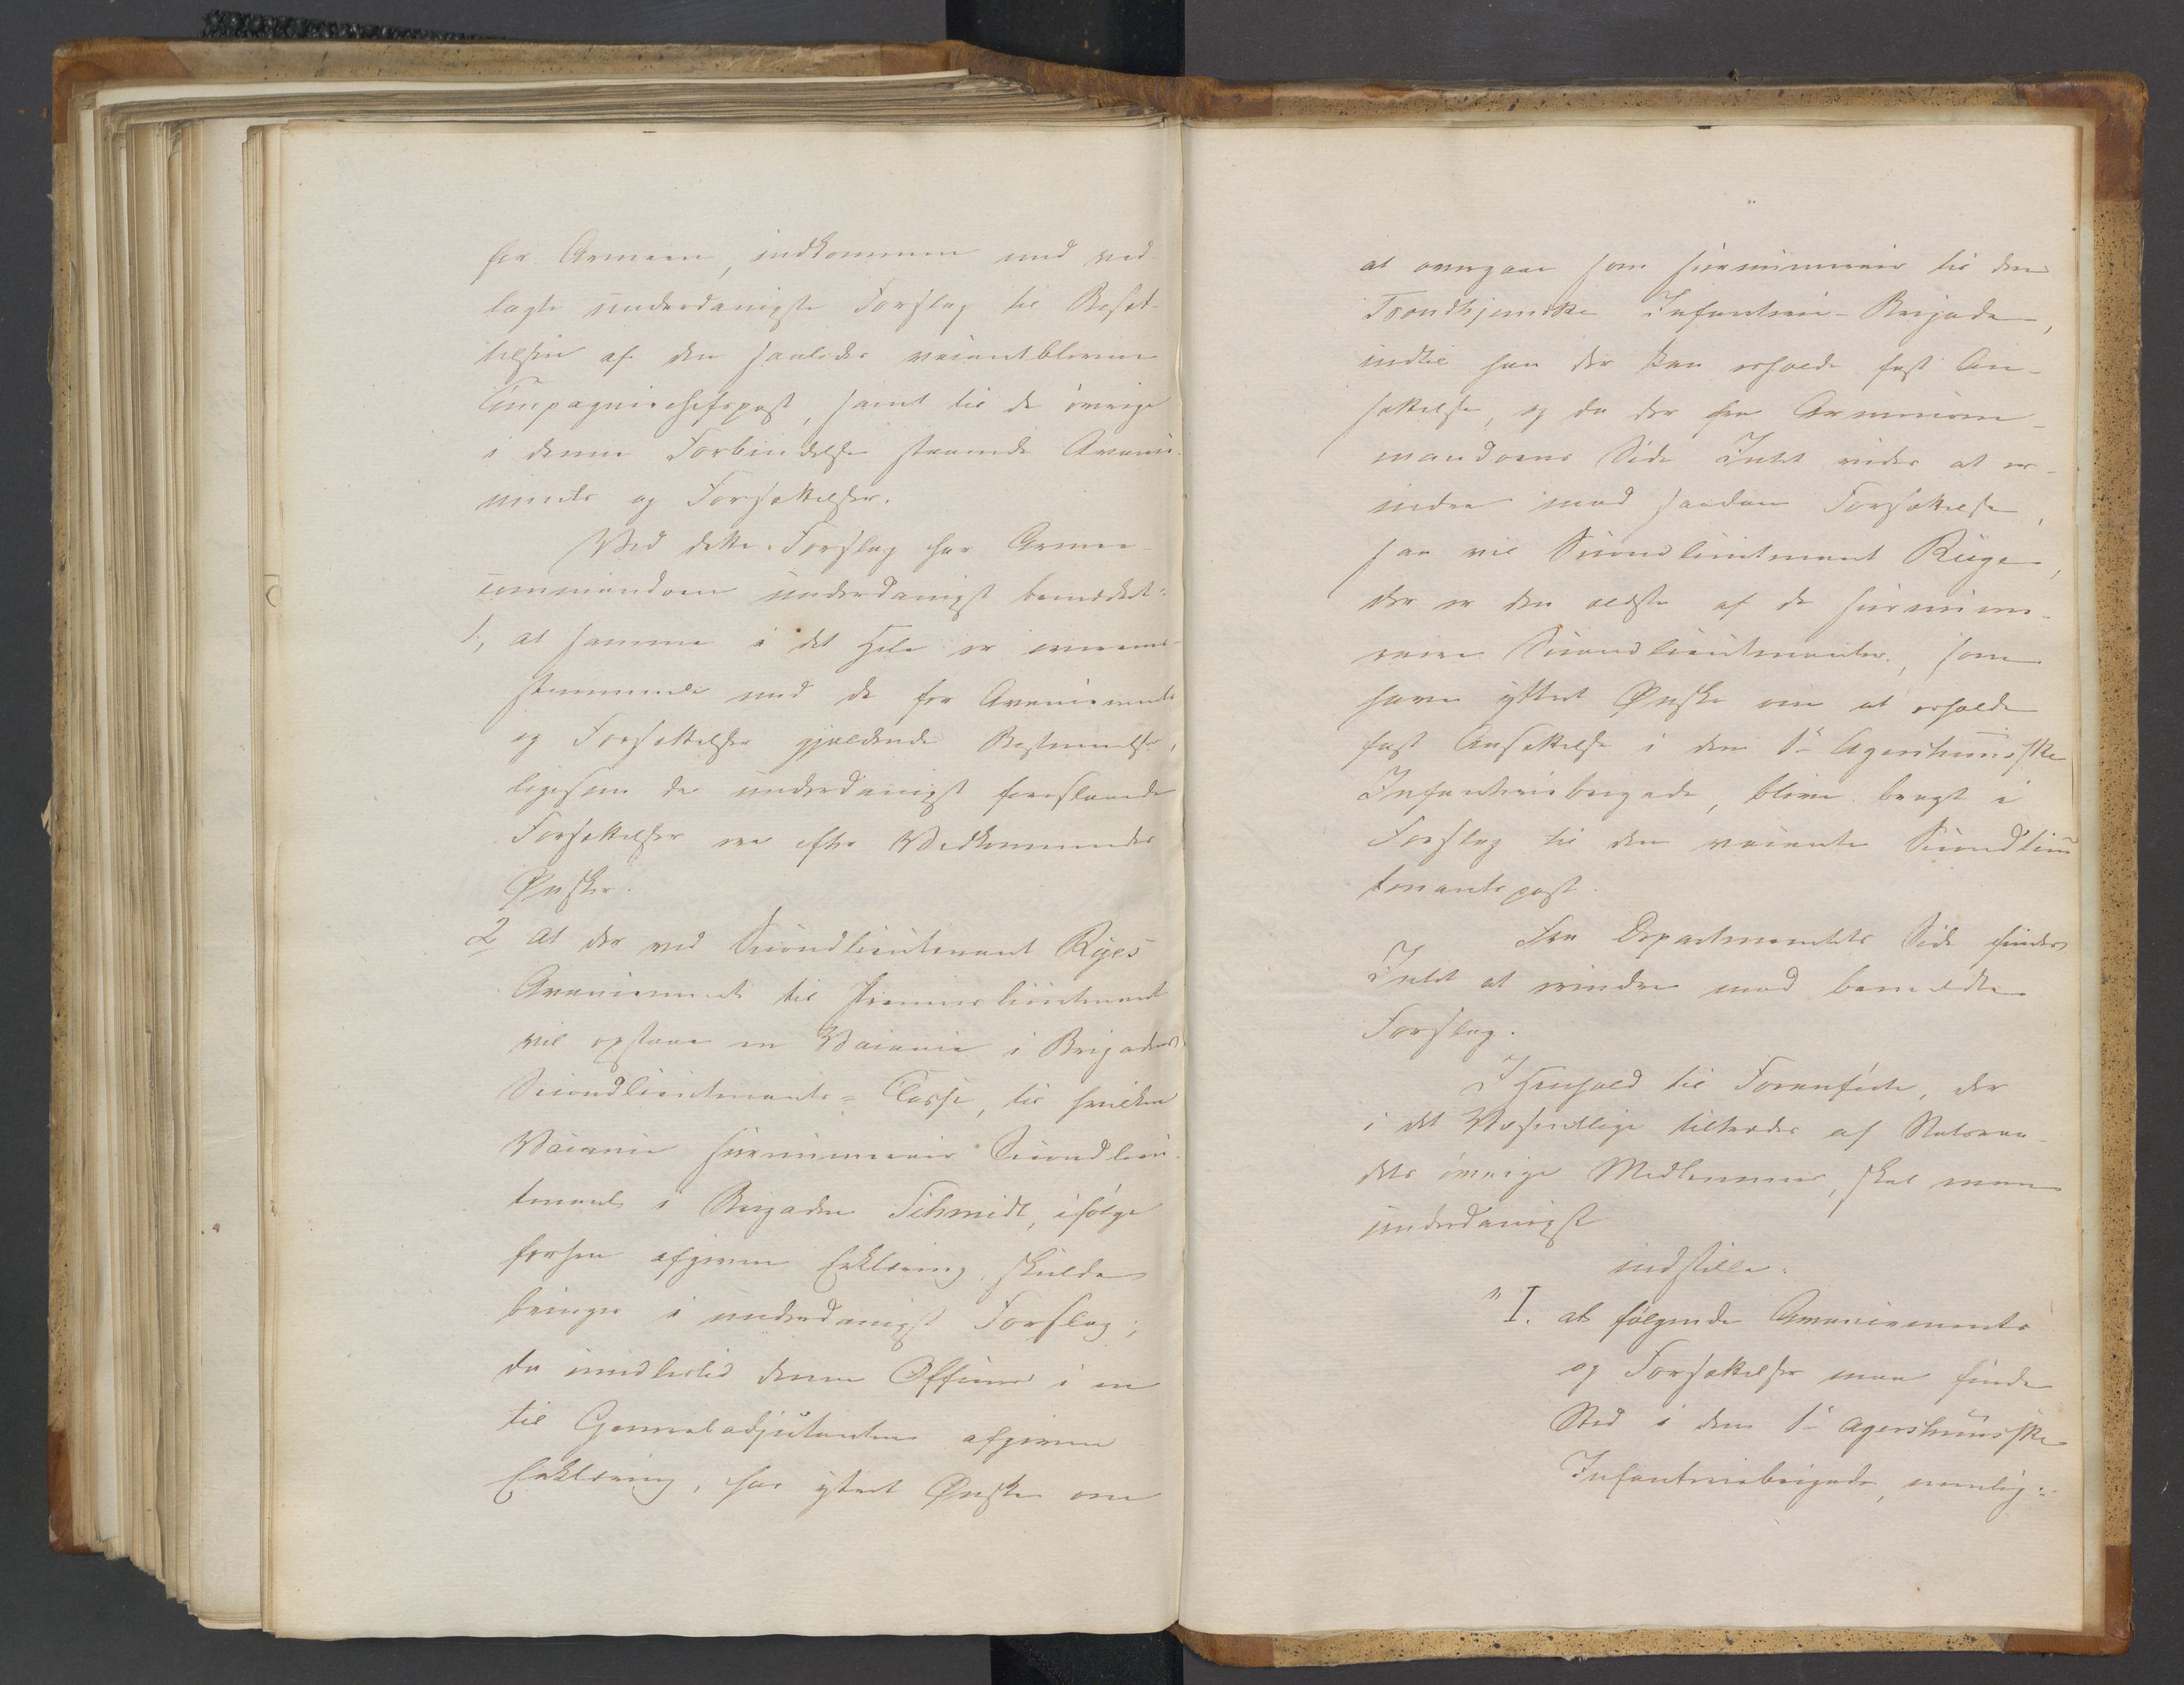 for Armeen, indkommen med ved
lagte underdanigste Forslag til Besæt-
telsen af den saaledes vacantblevne
Compagniechefspost, samt til de øvrige
i denne Forbindelse staaende Avance-
ments og Forsættelser.
Ved dette Forslag har Armee-
commandoen underdanigst bemærket:
1, at samme i det Hele er overeens-
stemmende med de for Avancements
og Forsættelser gjældende Bestemmelser,
ligesom de underdanigst foreslaaede
Forsættelser ere efter Vedkommendes
Ønsker.
2 at der ved Secondlieutenant Ryes
Avancement til Premierlieutenant
vil opstaae en Vacance i Brigadens
Secondlieutenants-Classe, til hvilken
Vacance surnumerair Secondlieu-
tenant i Brigaden Schmidt, ifølge
forhen afgiven Erklæring, skulde
bringes i underdanigst Forslag;
da imidlertid denne Officier i en
til Generaladjutanten afgiven
Erklæring, har yttret Ønske om
at overgaae som surnumerair til den
Trondhjemske Infanterie-Brigade,
indtil han der kan erholde fast An-
sættelse, og da der fra Armeecom-
mandoens Side Intet vides at er-
indre mod saadan Forsættelse,
saa vil Secondlieutenant Ruge,
der er den ældste af de surnume-
raire Secondlieutenanter, som
have yttret Ønske om at erholde
fast Ansættelse i den 1ste Agershuusske
Infanteriebrigade, blive bragt i
Forslag til den vacante Secondlieu
tenantspost.
Fra Departementets Side findes
Intet at erindre mod bemeldte
Forslag.
I Henhold til Foranførte, der
i det Væsentlige tiltrædes af Statsraa-
dets øvrige Medlemmer, skal man
underdanigst
indstille:
"I. at følgende Avancements
og Forsættelser maae finde
Sted i den 1ste Agershuusske
Infanteriebrigade, nemlig: